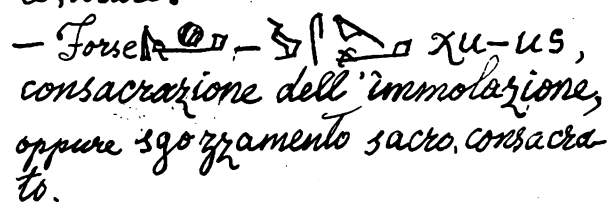 — Forse – χu–us,
consacrazione dell'immolazione,
oppure sgozzamento sacro, consacra-
to.